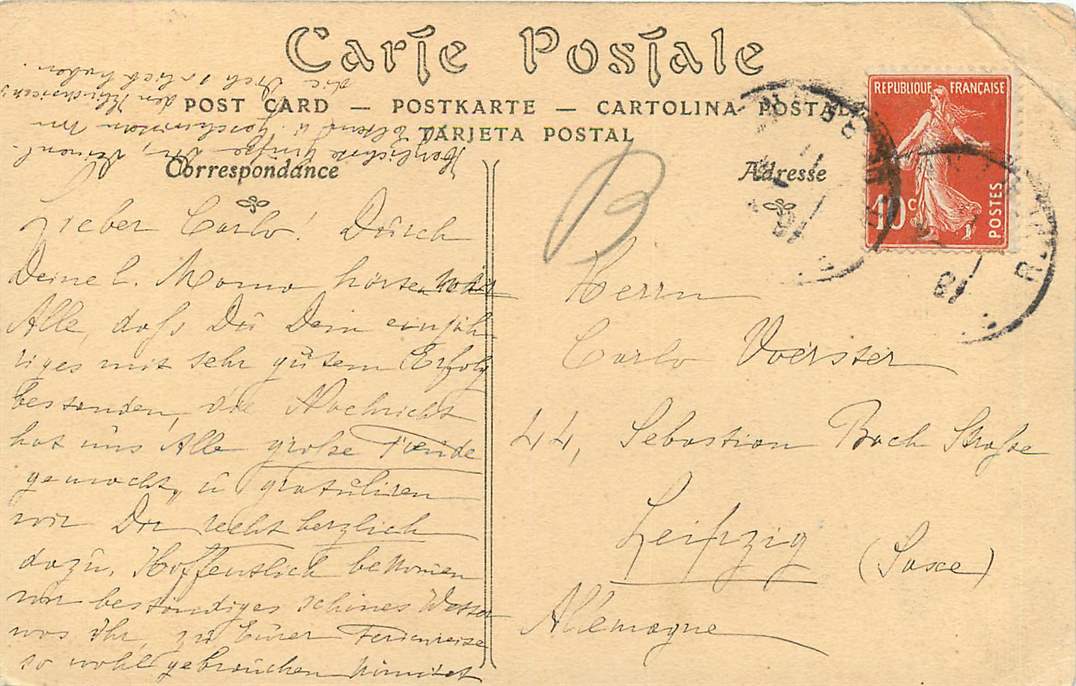 Carte Postale
POST CARD — POSTKARTE — CARTOLINA POSTALE
TARJETA POSTAL
Correspondance
Adresse
REPUBLIQUE FRANÇAISE
10c
POSTES
B
Lieber Carlo! Dürch
Deine l. Mama hörten wir
Alle, daß Du Dein einjäh
riges mit sehr gutem Erfolg
bestanden, die Nachricht
hat uns Alle große Freude
gemacht, u gratuliren
wir Dir recht herzlich
dazu. Hoffentlich bekommen
wir beständiges schönes Wetter
was Ihr, zu Eurer Ferienreise
so wohl gebrauchen könntet
Herzlichste Grüße Dir,
u. Geschwistern von
den
die Dich lieb haben.
Herrn
Carlo Voerster
44, Sebastian Bach Straße
Leipzig
(Saxe)
Allemagne